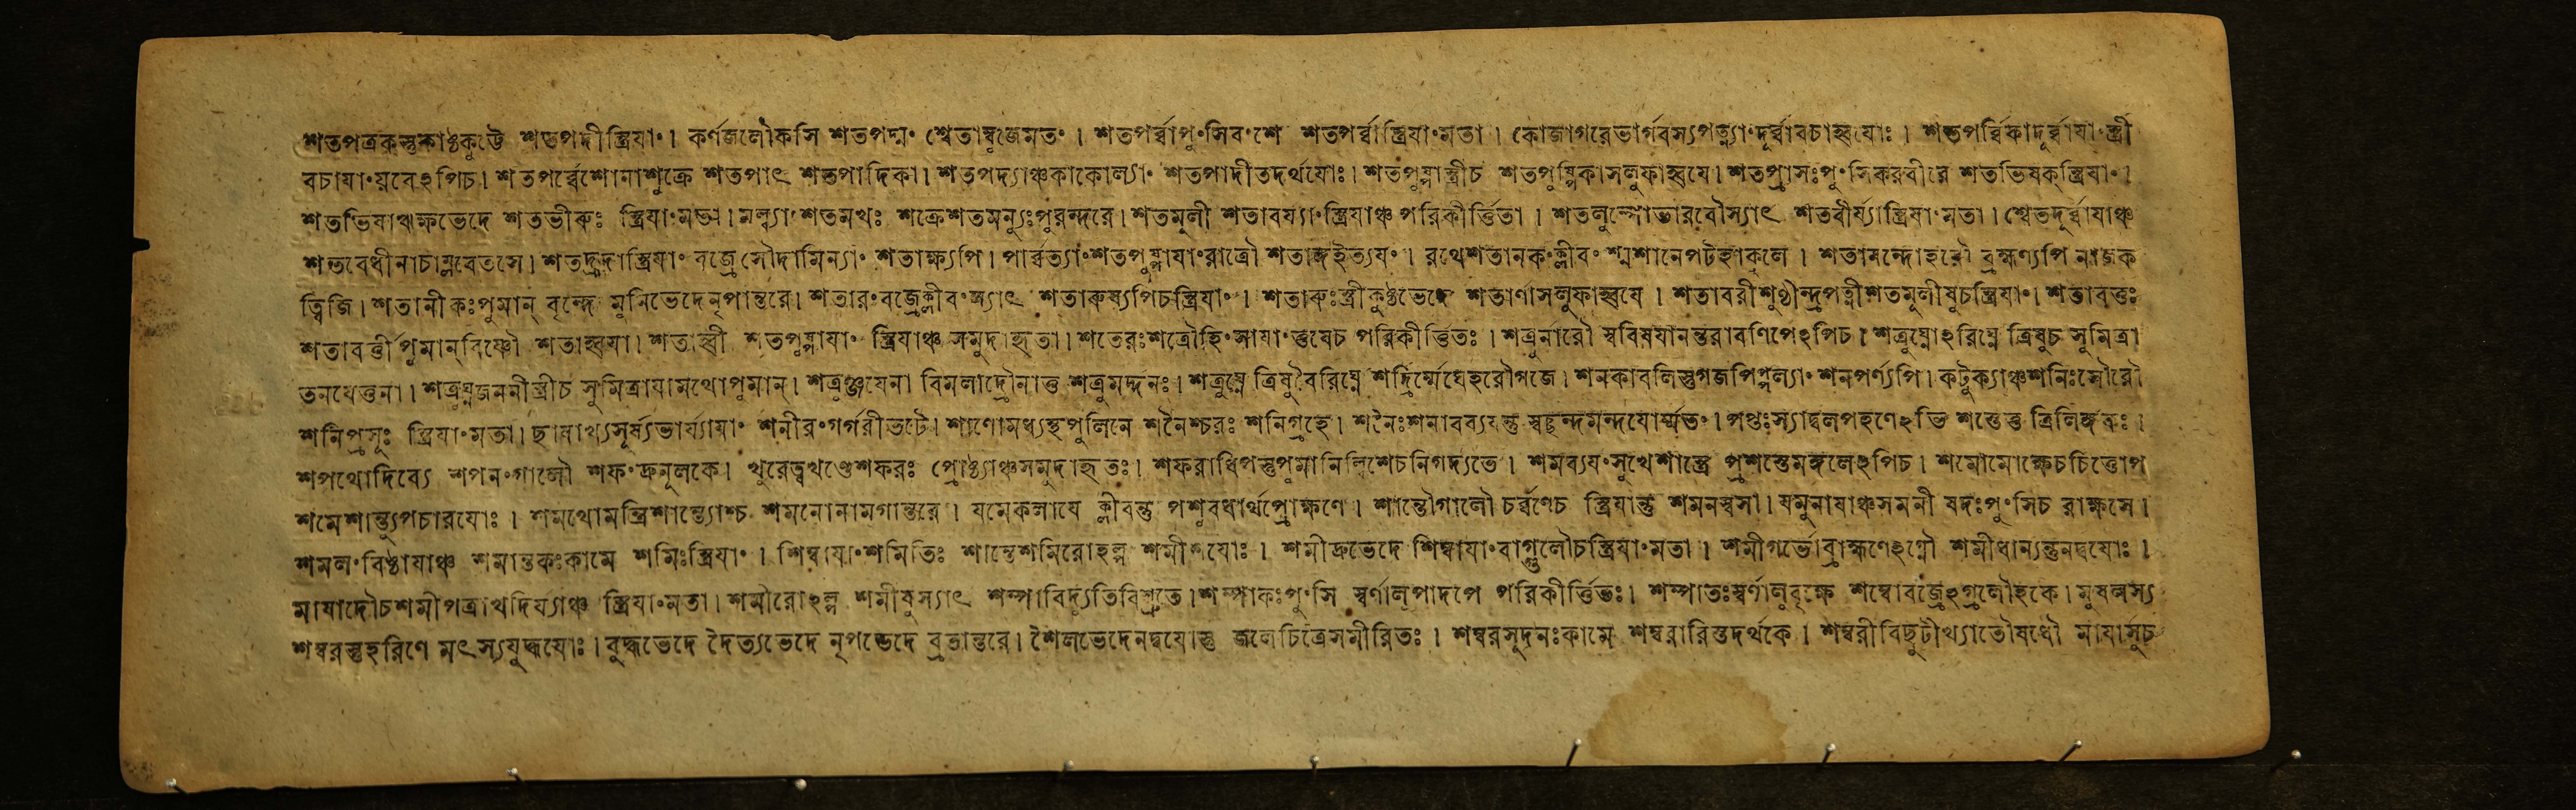 শতপত্রকস্তুকাষ্ঠকুট্টে শতপদীস্ত্রিযাং। কর্ণজলৌকসি শতপদ্মং শ্বেতাম্বুজেমতং। শতপর্ব্বাপুংসিবংশে শতপর্ব্বাস্ত্রিযাংমতা। কোজাগরেভার্গবস্যপত্ন্যাংদূর্ব্বাবচাহ্বযোঃ। শতপর্ব্বিকাদূর্ব্বাযাংস্ত্রী
বচাযাংযবেঽপিচ। শতপর্ব্বেশোনাশুক্রে শতপাৎ শতপাদিকা। শতপদ্যাঞ্চকাকোল্যাং শতপাদীতদর্থযোঃ। শতপুষ্পাস্ত্রীচ শতপুষ্পিকাসলুফাহ্বযে। শতপ্রাসঃপুংসিকরবীরে শতভিষক্স্ত্রিযাং।
শতভিষাঋক্ষভেদে শতভীরুঃ স্ত্রিযাংমতা। মল্ল্যাংশতমখঃ শক্রেশতমন্যুঃপুরন্দরে। শতমূলী শতাবর্য্যাংস্ত্রিযাঞ্চ পরিকীর্ত্তিতা। শতবীর্য্যাস্ত্রিযাংমতা। শ্বেতদূর্ব্বাযাঞ্চ
শতবেধীনাচাম্লবেতসে। শতহ্রদাস্ত্রিযাং বজ্রেসৌদামিন্যাং শতাক্ষ্যপি। পার্ব্বত্যাংশতপুষ্পাযাংরাত্রৌ শতাঙ্গইত্যযং। রথেশতানকংক্লীবং শ্মশানেপটহাকুলে। শতানন্দোহরৌ ব্রহ্মণ্যপি নাজক
ত্বিজি। শতানীকঃপুমান্ বৃন্দে মুনিভেদেনৃপান্তরে। শতারংবজ্রেক্লীবংস্যাৎ শতারুষ্যপিচস্ত্রিযাং। শতারুঃস্ত্রীকুষ্ঠভেদে শতাণাসলুফাহ্বযে। শতাবরীশুণ্ঠীন্দ্রপত্নীশতমূলীষুচস্ত্রিযাং। শতাবত্তঃ
শতাবর্ত্তী পুমান্বিষ্ণৌ শতাহ্বযা। শতাহ্বী শতপুষ্পাযাং স্ত্রিযাঞ্চ সমুদাহৃতা। শতেরঃশত্রৌহিংসাযাংতুষেচ পরিকীর্ত্তিতঃ। শত্রুনারৌ স্ববিষযানন্তরাবণিপেঽপিচ। শত্রুঘ্নোঽরিঘ্নে ত্রিষুচ সুমিত্রা
তনযেত্তুনা। শত্রুঘ্নজননীস্ত্রীচ সুমিত্রাযামথোপুমান্। শত্রুঞ্জযেনা বিমলাদ্রৌনাত্ত শত্রুমর্দ্দনঃ। শত্রুঘ্নে ত্রিষুবৈরিঘ্নে শদ্রির্ম্মেঘেহরৌগজে। শনকাবলিস্তুগজপিপ্পল্যাং শনপর্ণ্যপি। কটুক্যাঞ্চশনিঃসৌরৌ
শনিপ্রসূঃ স্ত্রিযাংমতা। ছাযাখ্যসূর্য্যভার্য্যাযাং শনীরংগর্গরীভটে। শাণোমধ্যস্থপুলিনে শনৈশ্চরঃ শনিগ্রহে। শনৈঃশনাবব্যযন্তু স্বচ্ছন্দমন্দযোর্ম্মতং। শপ্তেত্ত ত্রিলিঙ্গকঃ।
শপথোদিব্যে শপনংগালৌ শফংদ্রুমূলকে। খুরেত্বখণ্ডেশফরঃ প্রোষ্ঠ্যাঞ্চসমুদাহৃতঃ। শফরাধিপস্তুপুমানিলিশেচনিগদ্যতে। শমব্যযংসুখেশাস্ত্রে প্রশস্তেমঙ্গলেঽপিচ। শমোমোক্ষেচচিত্তোপ
শমেশান্ত্যুপচারযোঃ। শমথোমন্ত্রিশান্ত্যোশ্চ শমনোনামগান্তরে। যমেকলাযে ক্লীবন্তু পশুবধার্থপ্রোক্ষণে। শান্তৌগালৌ চর্ব্বণেচ স্ত্রিযান্তু শমনস্বসা। যমুনাযাঞ্চসমনী ষদঃপুংসিচ রাক্ষসে।
শমলংবিষ্ঠাযাঞ্চ শমান্তকঃকামে শমিঃস্ত্রিযাং। শিম্বাযাংশমিতিঃ শান্তেশমিরোহল্প শমীশযোঃ। শমীদ্রুভেদে শিম্বাযাংবাগ্গুলৌচস্ত্রিযাংমতা। শমীগর্ভোব্রাহ্মণেঽগ্নৌ শমীধান্যন্তুনদ্বযোঃ।
মাষাদৌচশমীপত্রাখদির্য্যাঞ্চ স্ত্রিযাংমতা। শমীরোঽল্প শমীষুস্যাৎ শম্পাবিদ্যুতিবিশ্রুতে। শম্পাকঃপুংসি স্বর্ণালুপাদপে পরিকীর্ত্তিতঃ। শম্পাতঃস্বর্ণালুবৃক্ষে শম্বোবজ্রেঽগ্রলৌহকে। মুষলস্য
শম্বরস্তুহরিণে মৎস্যযুদ্ধযোঃ। বুদ্ধভেদে দৈত্যভেদে নৃপভেদে ব্রতান্তরে। শৈলভেদেনদ্বযোস্তু জলেচিত্রেসমীরিতঃ। শম্বরসূদনঃকামে শম্বরারিস্তদর্থকে। শম্বরীবিছুটীখ্যাতৌষধৌ মাযাসুচ